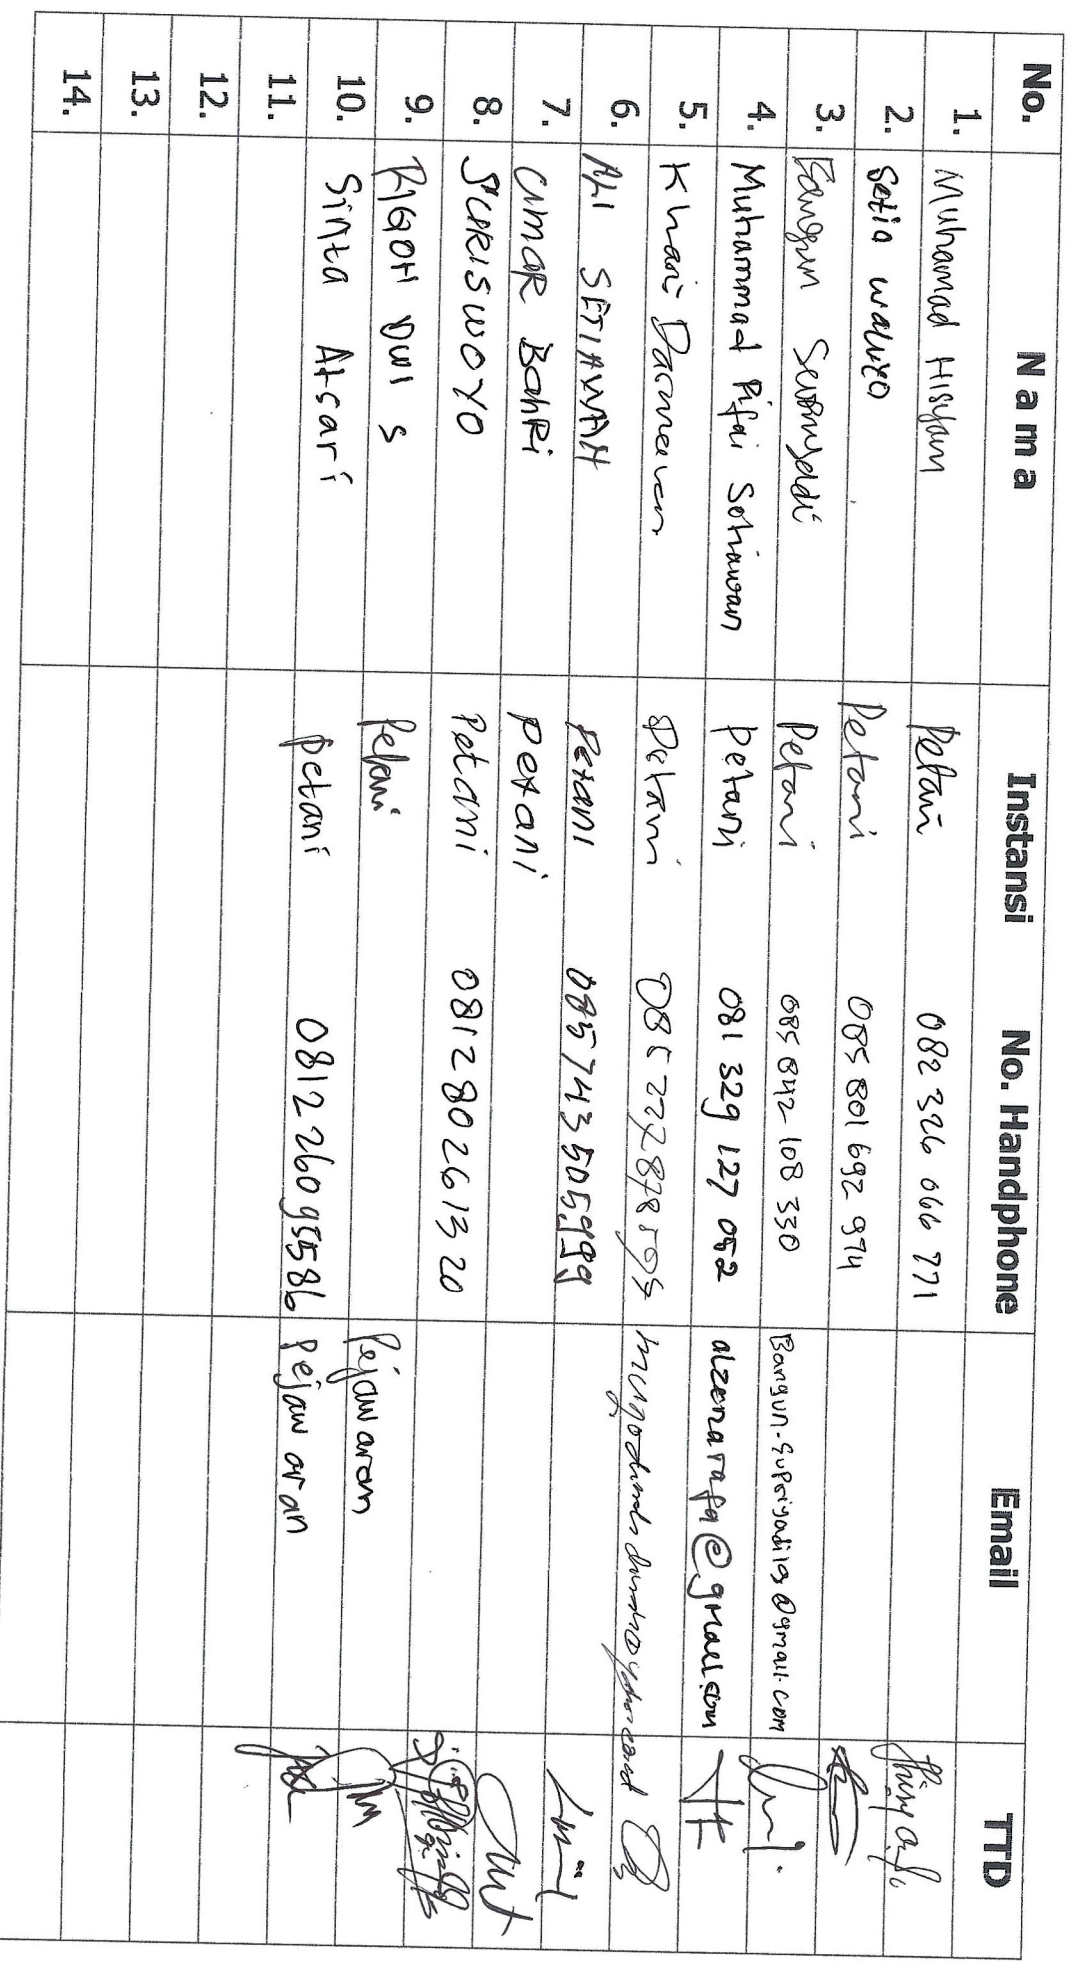 No. Nama Instansi No. Handphone Email TTD
1. Muhamad Hisyam Petani 082 326 066 771
2. Setia waluyo Petani 085 801 692 974
3. Bangun Petani 085 842 108 330 Bangun.Supriyadi19@gmail.com
4. Muhammad Rifai Setiawan Petani 081 329 127 052
5. Khari Darmawan Petani
6. ALI SETIAWAN Petani 085743505999
7. UMAR BAHRI Petani
8. SURISWOYO Petani 081280261320
9. DWI S Petani Pejawaran
10. Sinta Atsari Petani 081226095586 Pejawaran
11.
12.
13.
14.